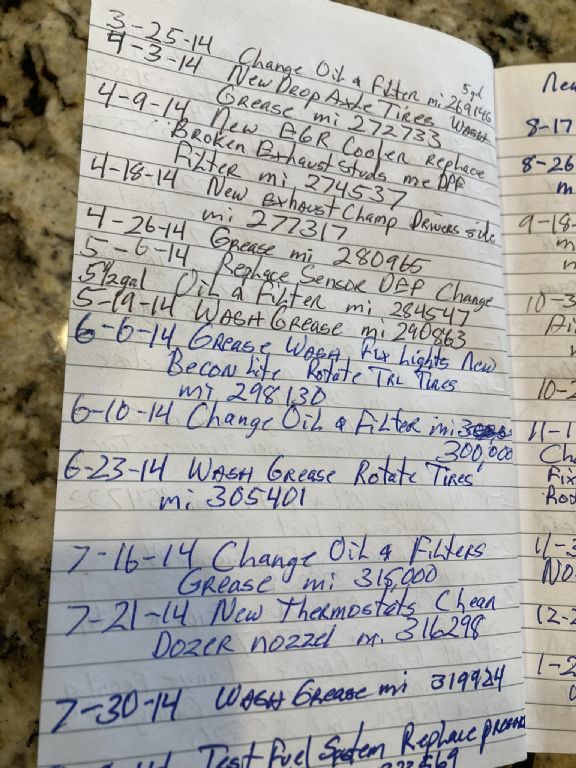 3-25-14 Change Oil & Filter mi 269146
5gal
4-3-14 New Drop Axle Tires Wash
Grease mi 272733
4-9-14 New EGR Cooler replace
Broken Exhaust studs me DPF
Filter mi 274537
4-18-14 New Exhaust Champ Drivers side
mi 277317
4-26-14 Grease mi 280965
5-6-14 Replace Sensor DEF Change
5½gal Oil & Filter mi 284547
5-19-14 Wash Grease mi 290863
6-6-14 Grease Wash Fix Lights New
Becon Lite Rotate TRL Tires
mi 298130
6-10-14 Change Oil & Filter mi
300,000
6-23-14 Wash Grease Rotate Tires
mi 305401
7-16-14 Change Oil & Filters
Grease mi 315,000
7-21-14 New Thermostats Clean
Dozer nozzel mi 316298
7-30-14 Wash Grease mi 319924
Test Fuel System Replace
New
8-17
8-26
m
9-18-
m
10-3
10-2
11-1
Cha
Fix
Rot
11-3
No
12-2
1-2